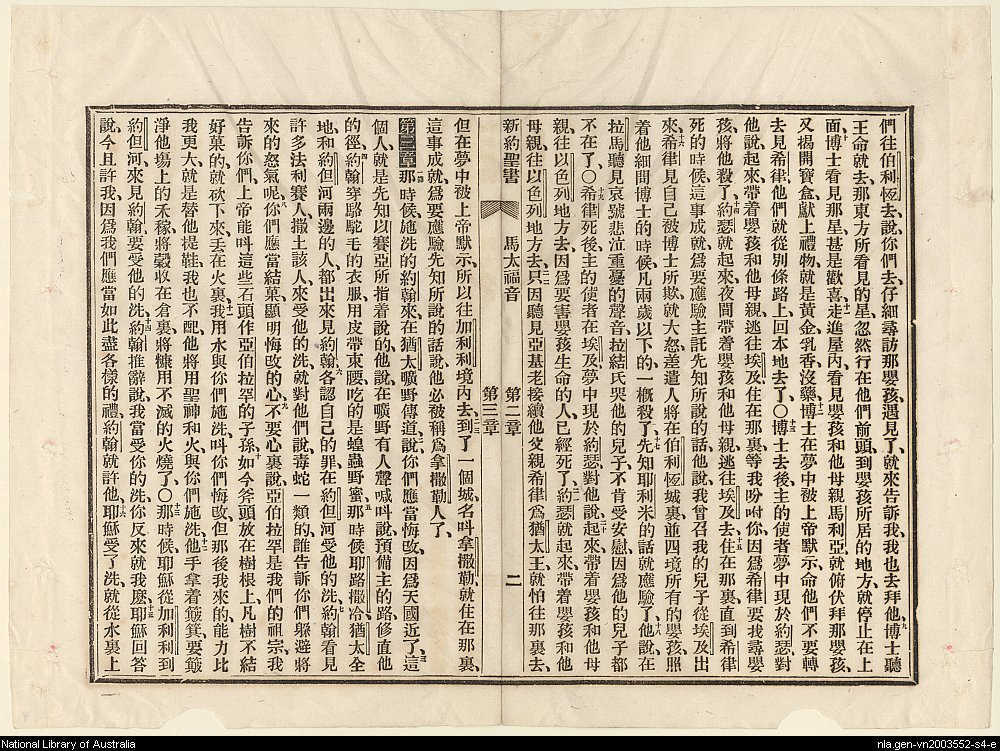 們往伯利恆去、說你們去、仔細尋訪那嬰孩、遇見了、就來告訴我、我也去拜他、九博士聽
王命就去、那東方所看見的星、忽然行在他們前頭、到嬰孩所居的地方、就停止在上
面、十博士看見那星、甚是歡喜、十一走進屋內、看見嬰孩和他母親馬利亞、就俯伏拜那嬰孩、
又揭開寶盒、獻上禮物、就是黃金、乳香、沒藥、十二博士在夢中被上帝默示、命他們不要轉
去見希律、他們就從別條路上回本地去了、〇十三博士去後、主的使者夢中現於約瑟、對
他說、起來、帶着嬰孩和他母親、逃往埃及、住在那裏、等我吩咐你、因爲希律要我尋嬰
孩、將他殺了、十四約瑟就起來、夜間帶着嬰孩和他母親、逃往埃及去、十五住在那裏、直到希律
死的時候、這事成就、爲要應驗主託先知所說的話、他說、我曾召我的兒子從埃及出
來、十六希律見自己被博士所欺、就大怒、差遣人將在伯利恆城裏、並四境所有的嬰孩、照
着他細問博士的時候、凡兩歲以下的、一概殺了、十七先知耶利米的話就應驗了、十八他說、在
拉馬聽見哀號悲泣重憂的聲音、拉結氏哭他的兒子、不肯受安慰、因爲他的兒子都
不在了、〇十九希律死後、主的使者在埃及、夢中現於約瑟、對他說、二十起來、帶着嬰孩和他母
親、往以色列地方去、因爲要害嬰孩生命的人、已經死了、二一約瑟就起來、帶着嬰孩和他
母親、往以色列地方去、二二只因聽見亞基老接續他父親希律爲猶太王、就怕往那裏去、
新約聖書 馬太福音 第二章 第三章 二
但在夢中被上帝默示、所以往加利利境內去、二三到了一個城、名叫拿撒勒、就住在那裏、
這事成就、爲要應驗先知所說的話、說他必被稱爲拿撒勒人了、
第三章 那時候施洗的約翰來、在猶太曠野傳道、二說、你們應當悔改、因爲天國近了、三這
個人、就是先知以賽亞所指着說的、他說、在曠野有人聲喊叫說、預備主的路、修直他
的徑、四約翰穿駱駝毛的衣服、用皮帶束腰、吃的是蝗蟲野蜜、五那時候耶路撒冷、猶太全
地、和約但河兩邊的人、都出來見約翰、六各認自己的罪、在約但河受他的洗、七約翰看見
許多法利賽人、撒土該人、來受他的洗、就對他們說、毒蛇一類的、誰告訴你們躲避將
來的怒氣呢、八你們應當結菓、顯明悔改的心、九不要心裏說、亞伯拉罕是我們的祖宗、我
告訴你們、上帝能叫這些石頭作亞伯拉罕的子孫、十如今斧頭放在樹根上、凡樹不結
好菓的、就砍下來、丟在火裏、十一我用水與你們施洗、叫你們悔改、但那後我來的、能力比
我更大、就是替他提鞋、我也不配、他將用聖神和火與你們施洗、十二他手拿着簸箕、要簸
淨他塲上的禾稼、將穀收在倉裏、將糠用不滅的火燒了、〇十三那時候耶穌從加利利到
約但河、來見約翰、要受他的洗、十四約翰推辭說、我當受你的洗、你反來就我麽、十五耶穌回答
說、今且許我、因爲我們應當如此盡各樣的禮、約翰就許他、十六耶穌受了洗、就從水裏上
National Library of Australia
nla.gen-vn2003552-s4-e